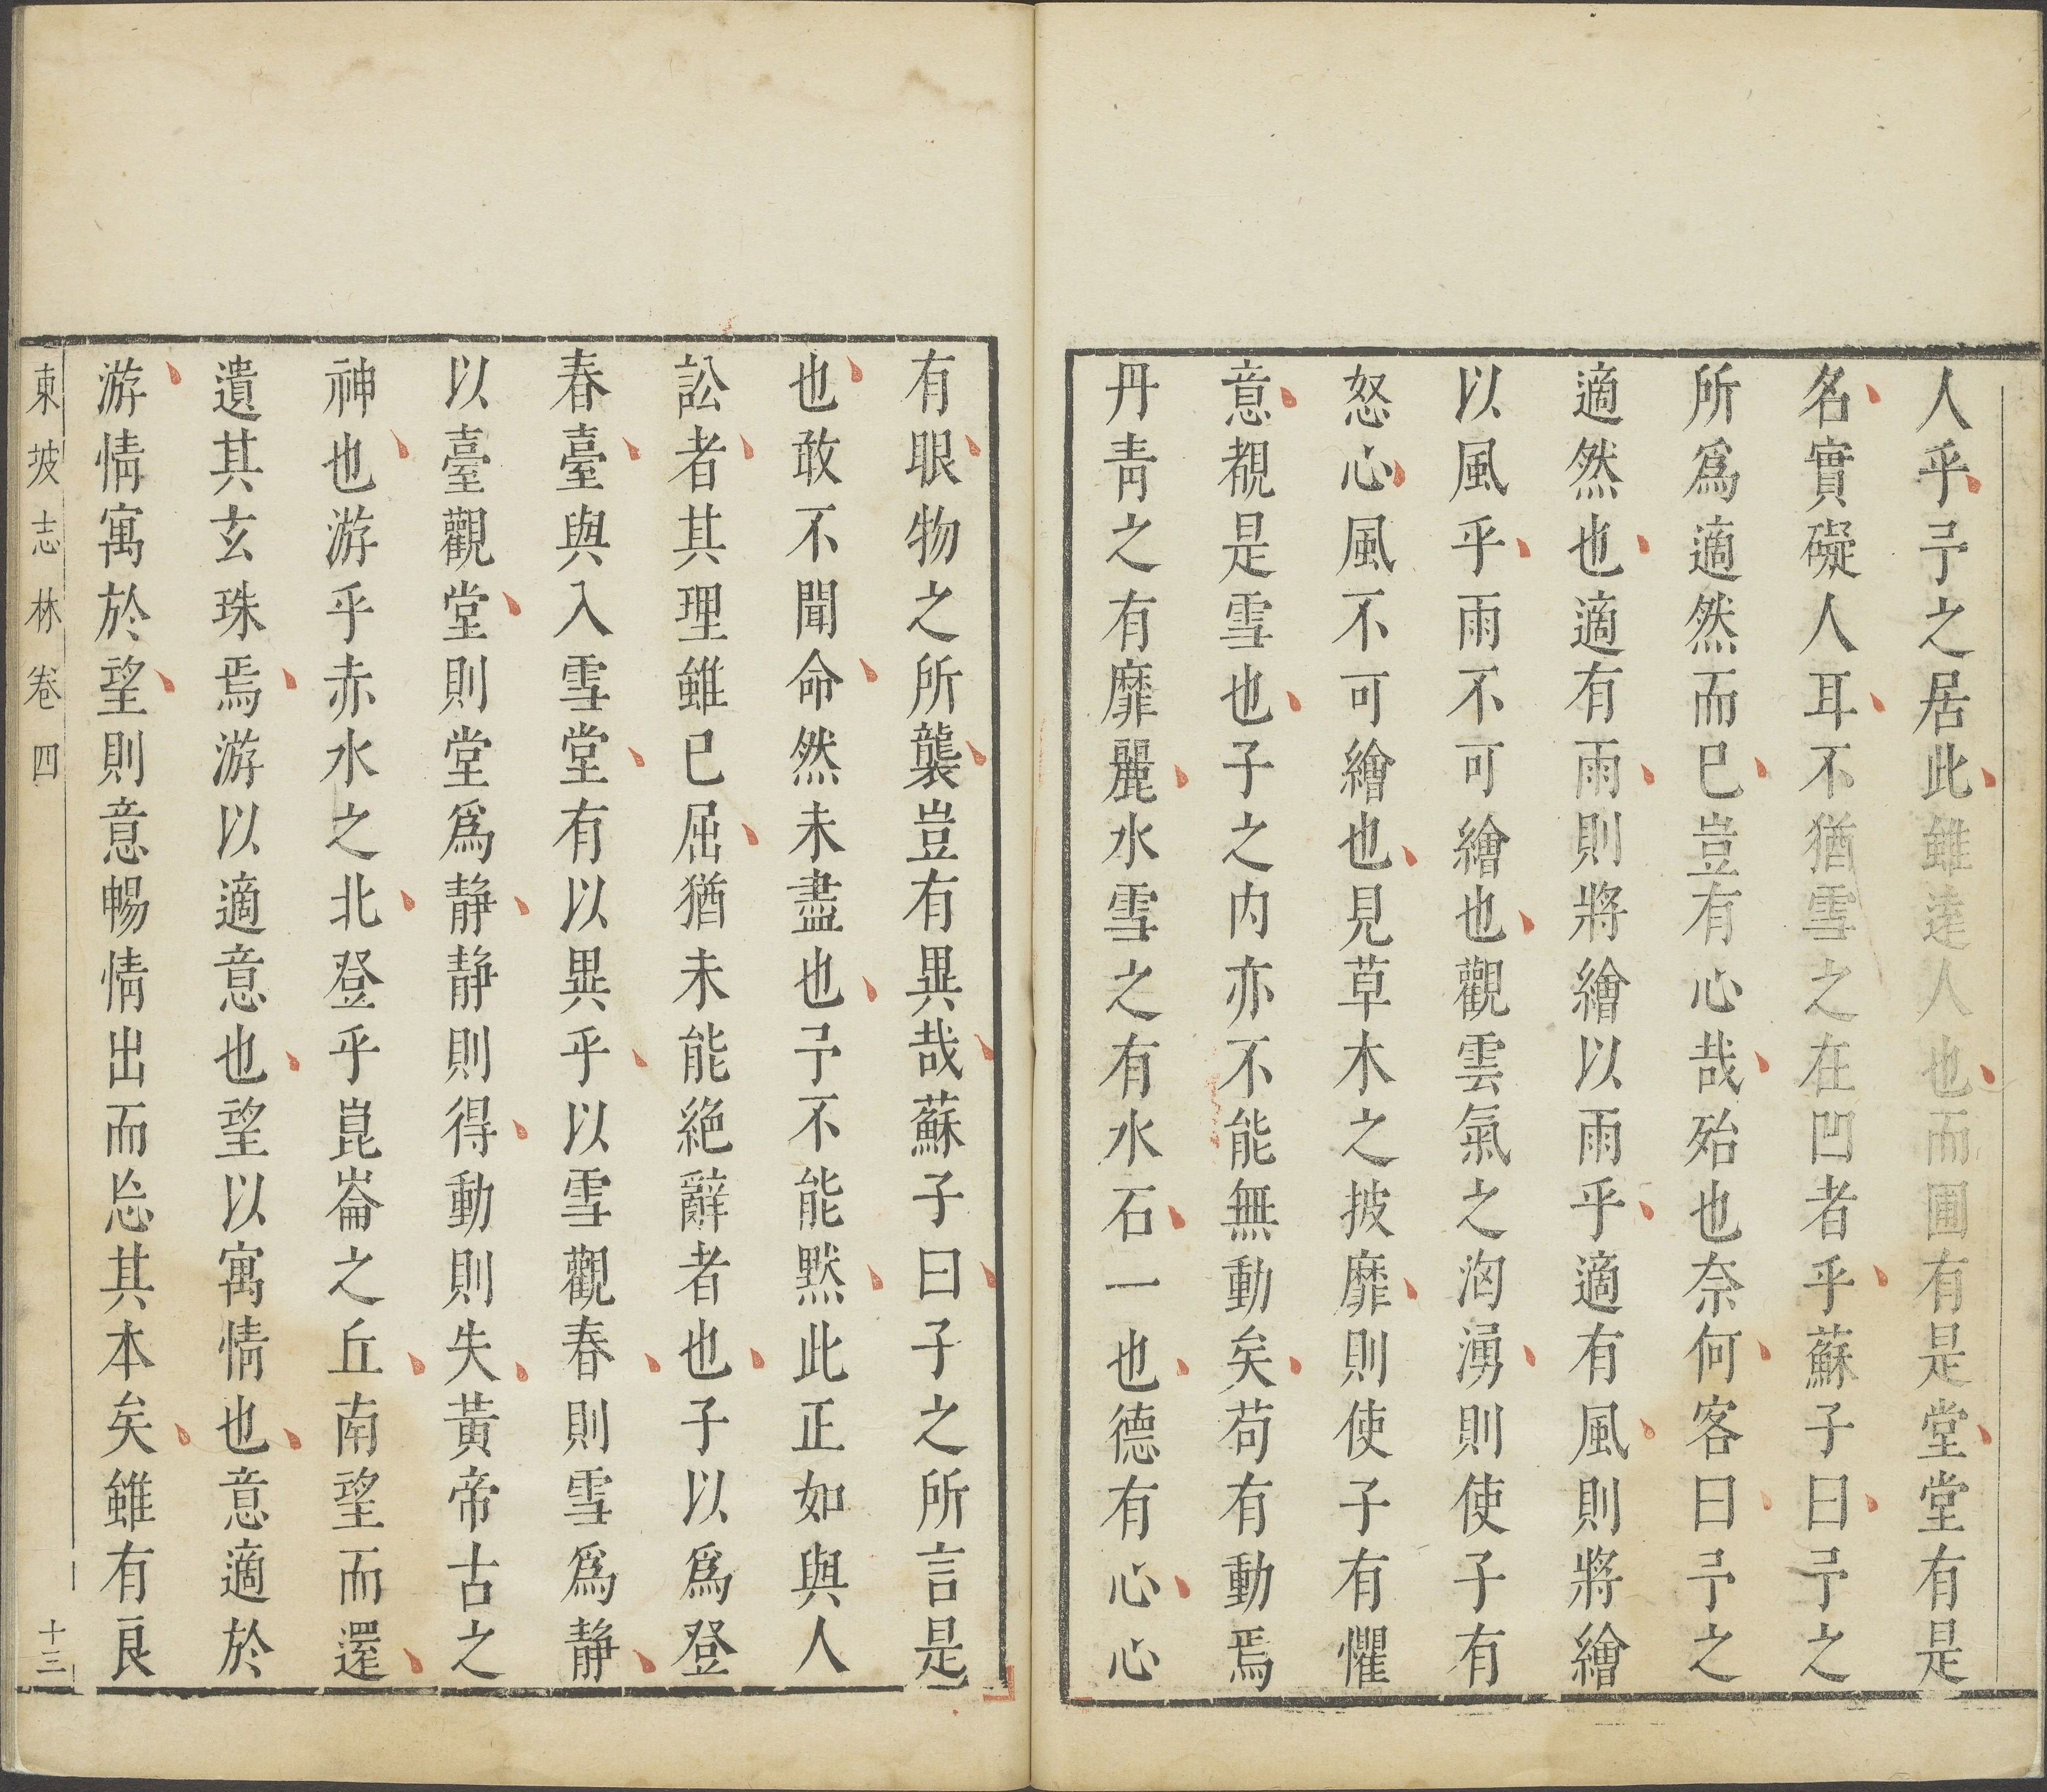 人乎予之居此雖逺人也而圃有是堂堂有是
名實礙人耳不猶雪之在凹者乎蘇子曰予之
所爲適然而已豈有心哉殆也奈何客曰予之
適然也適有雨則將繪以雨乎適有風則將繪
以風乎雨不可繪也觀雲氣之洶湧則使子有
怒心風不可繪也見草木之披靡則使子有懼
意覩是雪也子之内亦不能無動矣苟有動焉
丹靑之有靡麗水雪之有水石一也德有心心
有眼物之所襲豈有異哉蘇子曰子之所言是
也敢不聞命然未盡也予不能默此正如與人
訟者其理雖已屈猶未能絶辭者也子以爲登
春臺與入雪堂有以異乎以雪觀春則雪爲静
以臺觀堂則堂爲静静則得動則失黃帝古之
神也游乎赤水之北登乎崑崙之丘南望而還
遺其玄珠焉游以適意也望以寓情也意適於
游情寓於望則意暢情出而忘其本矣雖有良
東坡志林卷四
十三